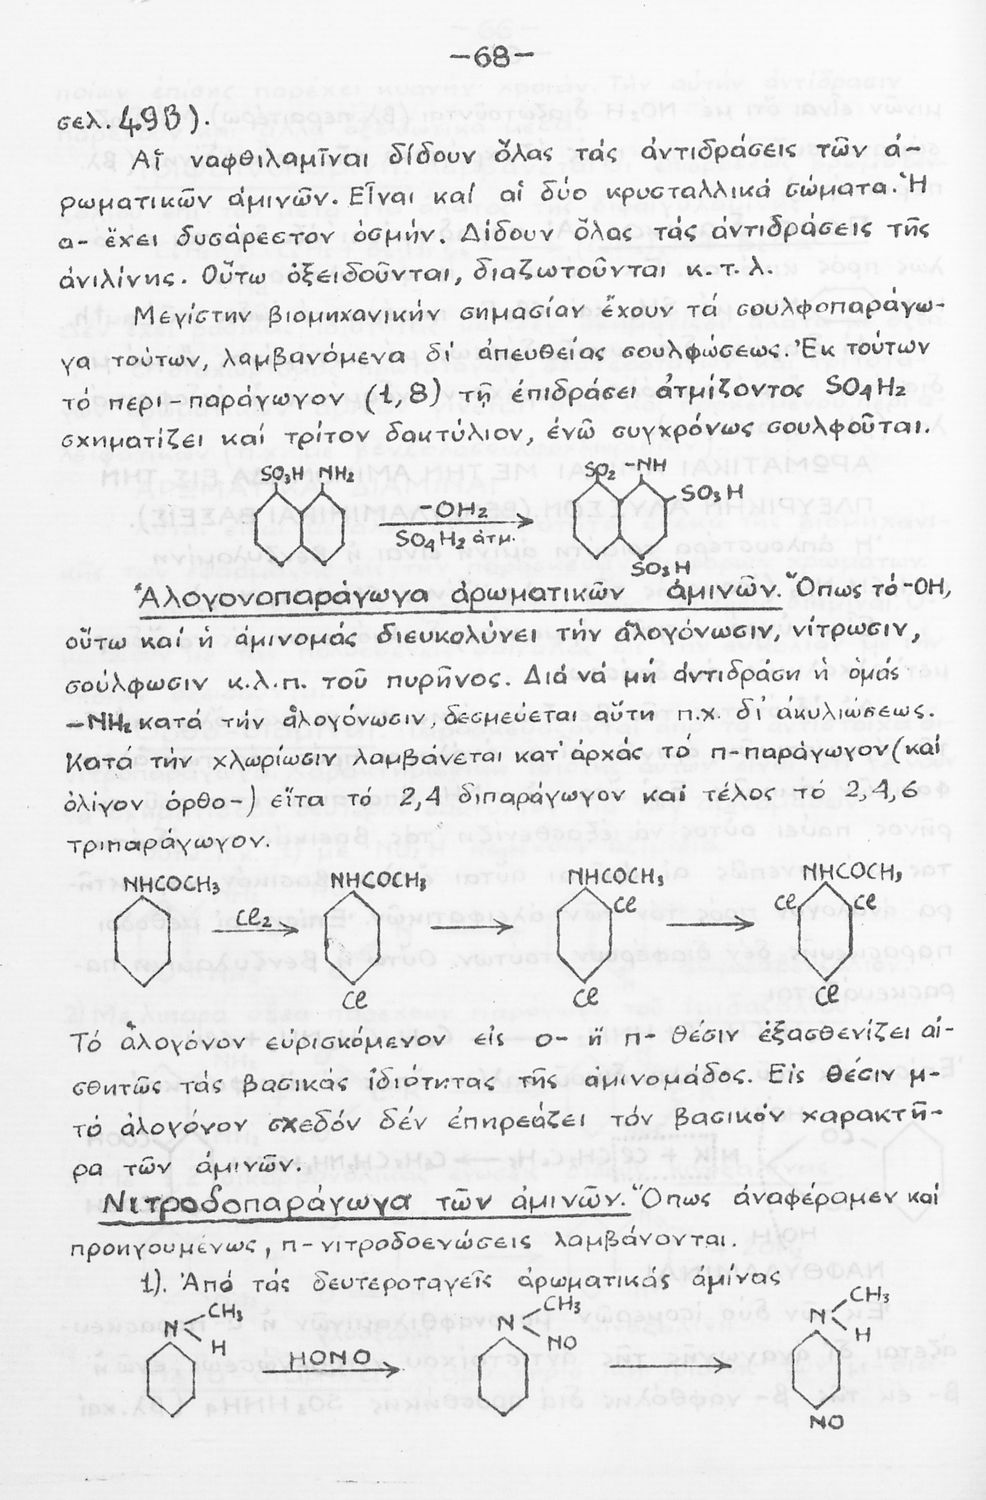 -68-
σελ. 49β).
Αἵ ναφθιλαμῖναι δίδουν ὅλας τάς ἀντιδράσεις τῶν ἀ-
ρωματικῶν ἀμινῶν. Εἶναι καί αἱ δύο κρυσταλλικά σώματα. Ἡ
α- ἔχει δυσάρεστον ὀσμήν. Δίδουν ὅλας τάς ἀντιδράσεις τῆς
ἀνιλίνης. Οὕτω ὀξειδοῦνται, διαζωτοῦνται κ.τ.λ.
Μεγίστην βιομηχανικήν σημασίαν ἔχουν τά σουλφοπαράγω-
γα τούτων, λαμβανόμενα δί ἀπευθείας σουλφώσεως. Ἐκ τούτων
τό περι-παράγωγον (1,8) τῇ ἐπιδράσει ἀτμίζοντος SO4H2
σχηματίζει καί τρίτον δακτύλιον, ἐνῶ συγχρόνως σουλφοῦται.
SO3H NH2
-OH2
SO4H2 ἀτμ.
SO2 -NH
SO3H
SO3H
Ἀλογονοπαράγωγα ἀρωματικῶν ἀμινῶν. Ὅπως τό -OH,
οὕτω καί ἡ ἀμινομάς διευκολύνει τήν ἀλογόνωσιν, νίτρωσιν,
σούλφωσιν κ.λ.π. τοῦ πυρῆνος. Διά νά μή ἀντιδράση ἡ ὁμάς
-NH2 κατά τήν ἀλογόνωσιν, δεσμεύεται αὕτη π.χ. δι' ἀκυλιώσεως.
Κατά τήν χλωρίωσιν λαμβάνεται κατ' ἀρχάς τό π-παράγωγον (καί
ὀλίγον ὀρθο-) εἴτα τό 2,4 διπαράγωγον καί τέλος τό 2,4,6
τριπαράγωγον.
NHCOCH3
Cl2
NHCOCH3
Cl
NHCOCH3
Cl
Cl
NHCOCH3
Cl Cl
Cl
Τό ἀλογόνον εὑρισκόμενον εἰς ο- ἤ π- θέσιν ἐξασθενίζει αἰ-
σθητῶς τάς βασικάς ἰδιότητας τῆς ἀμινομάδος. Εἰς θέσιν μ-
τό ἀλογόνον σχεδόν δέν ἐπηρεάζει τόν βασικόν χαρακτῆ-
ρα τῶν ἀμινῶν.
Νιτροδοπαράγωγα τῶν ἀμινῶν. Ὅπως ἀναφέραμεν καί
προηγουμένως, π-νιτροδοενώσεις λαμβάνονται.
1). Ἀπό τάς δευτεροταγεῖς ἀρωματικάς ἀμίνας
N CH3
H
HONO
N CH3
NO
N CH3
H
NO